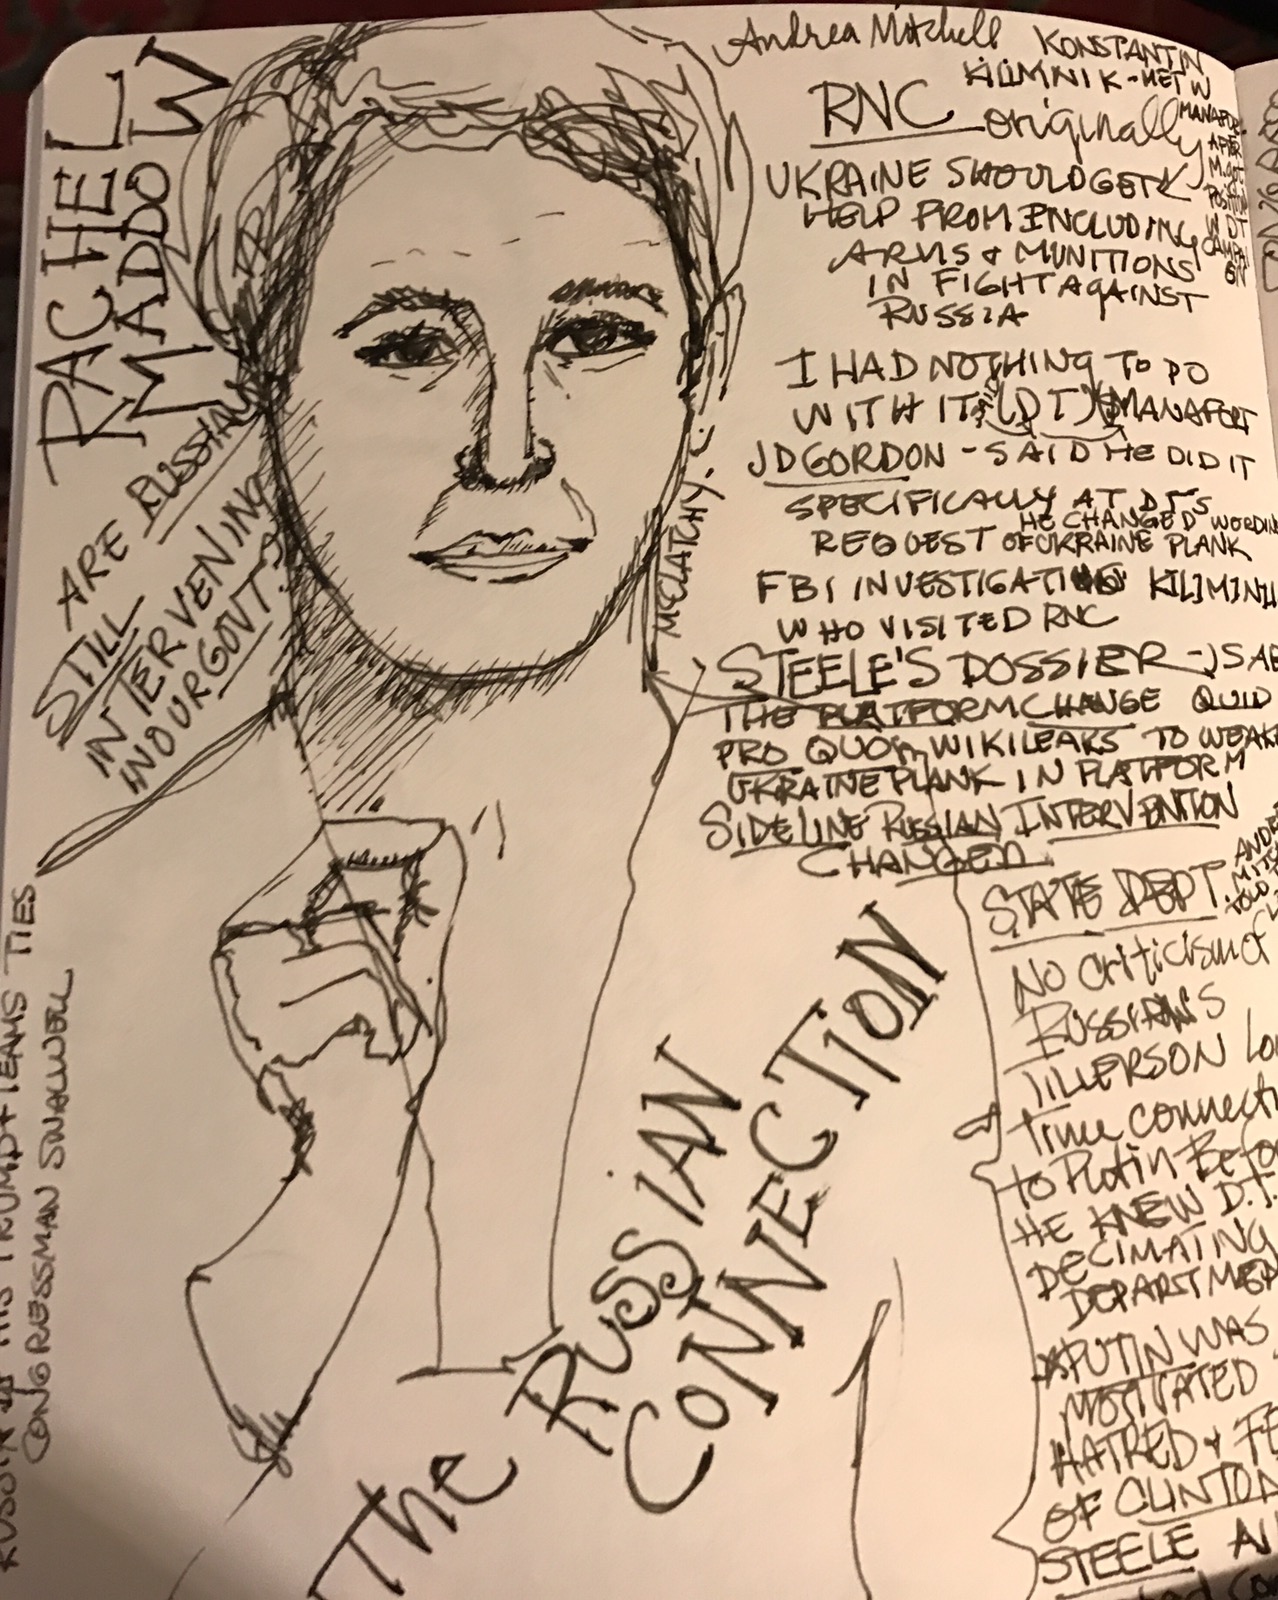 RACHEL
MADDOW
ARE RUSSIANS
STILL
INTERVENING
IN OUR GOVT?
HIS TRUMP + TEAMS TIES
CONGRESSMAN SWALWELL
Andrea Mitchell
KONSTANTIN
KILIMNIK - MET W
MANAFORT
AFTER
M. got
POSITION
W DT
CAMPAI
GN
RNC originally
UKRAINE SHOULD GET
HELP FROM INCLUDING
ARMS & MUNITIONS
IN FIGHT AGAINST
RUSSIA
I HAD NOTHING TO DO
WITH IT (DT) MANAFORT
JD GORDON - SAID HE DID IT
SPECIFICALLY AT DT'S
REQUEST HE CHANGED WORDIN
OF UKRAINE PLANK
FBI INVESTIGATING KILIMNI
WHO VISITED RNC
MCCLATCHY
STEELE'S DOSSIER - SAE
THE PLATFORM CHANGE QUID
PRO QUO WIKILEAKS TO WEAKE
UKRAINE PLANK IN PLATFORM
SIDELINE RUSSIAN INTERVENTION
CHANGED
STATE DEPT.
TOLD
No criticism of
Russian's
TILLERSON Lon
Time connecti
to Putin Befo
HE KNEW D.T.
DECIMATING
DEPARTMEN
PUTIN WAS
MOTIVATED
HATRED & FE
OF CLINTON
STEELE
The RUSSIAN
CONNECTION